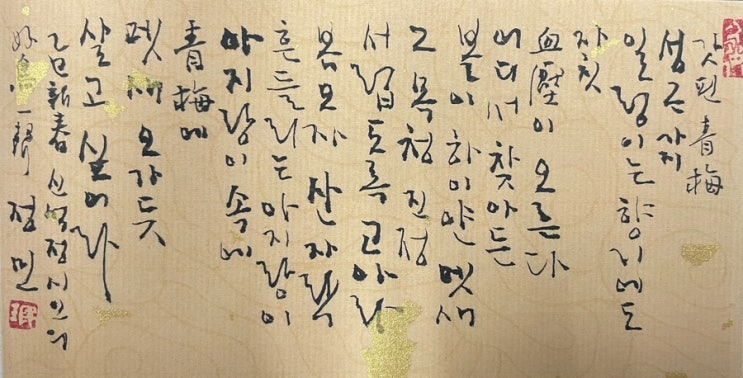 갓 핀 青梅
성근 가지
일렁이는 향기에도
자칫
血壓이 오른다
어디서 찾아든
볼이 하이얀 멧새
그 목청 진정
서럽도록 고와라
봄 오자 산자락
흔들리는 아지랑이
아지랑이 속에
青梅에
멧새 오가듯
살고 싶어라
乙巳新春 신석정시인의
好鳥一聲 정민